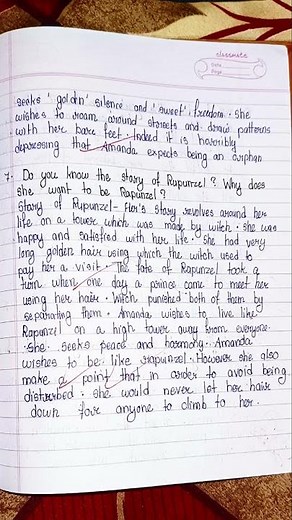 classmate
Date
Page
seeks 'goldn' silence and 'sweet' freedom. She
wishes to roam around streets and draw patterns
with her bare feet. Indeed it is horribly
depressing that Amanda expects being an orphan
7. Do you know the story of Rapunzel? Why does
she want to be Rapunzel?
Story of Rapunzel - Her's story revolves around her
life on a tower which was made by witch. she was
happy and satisfied with her life. She had very
long golden hair using which the witch used to
pay her a visit. The fate of Rapunzel took a
turn when one day a prince came to meet her
using her hair. Witch punished both of them by
separating them. Amanda wishes to live like
Rapunzel on a high tower away from everyone.
She seeks peace and harmony. Amanda
wishes to be like rapunzel. However she also
make a point that in order to avoid being
disturbed. she would never let her hair
down for anyone to climb to her.